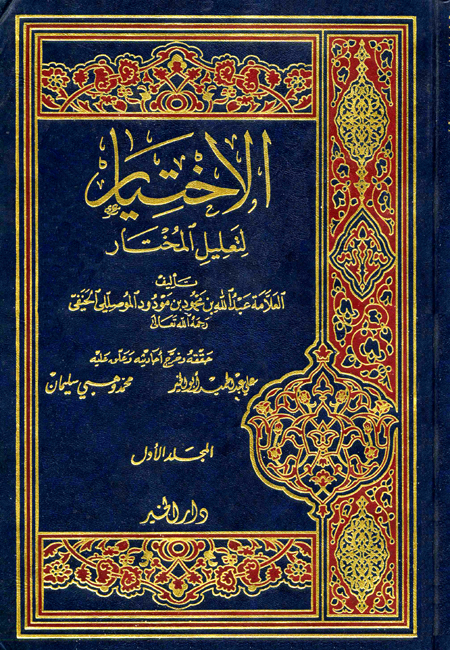 الاختيار
لتعليل المختار
تأليف
العلامة عبد الله بن محمود بن مودود الموصلي الحنفي
رحمه الله تعالى
حققه وخرج أحاديثه وعلق عليه
علي عبد الحميد أبو الخير محمد وهبي سليمان
المجلد الأول
دار الخير